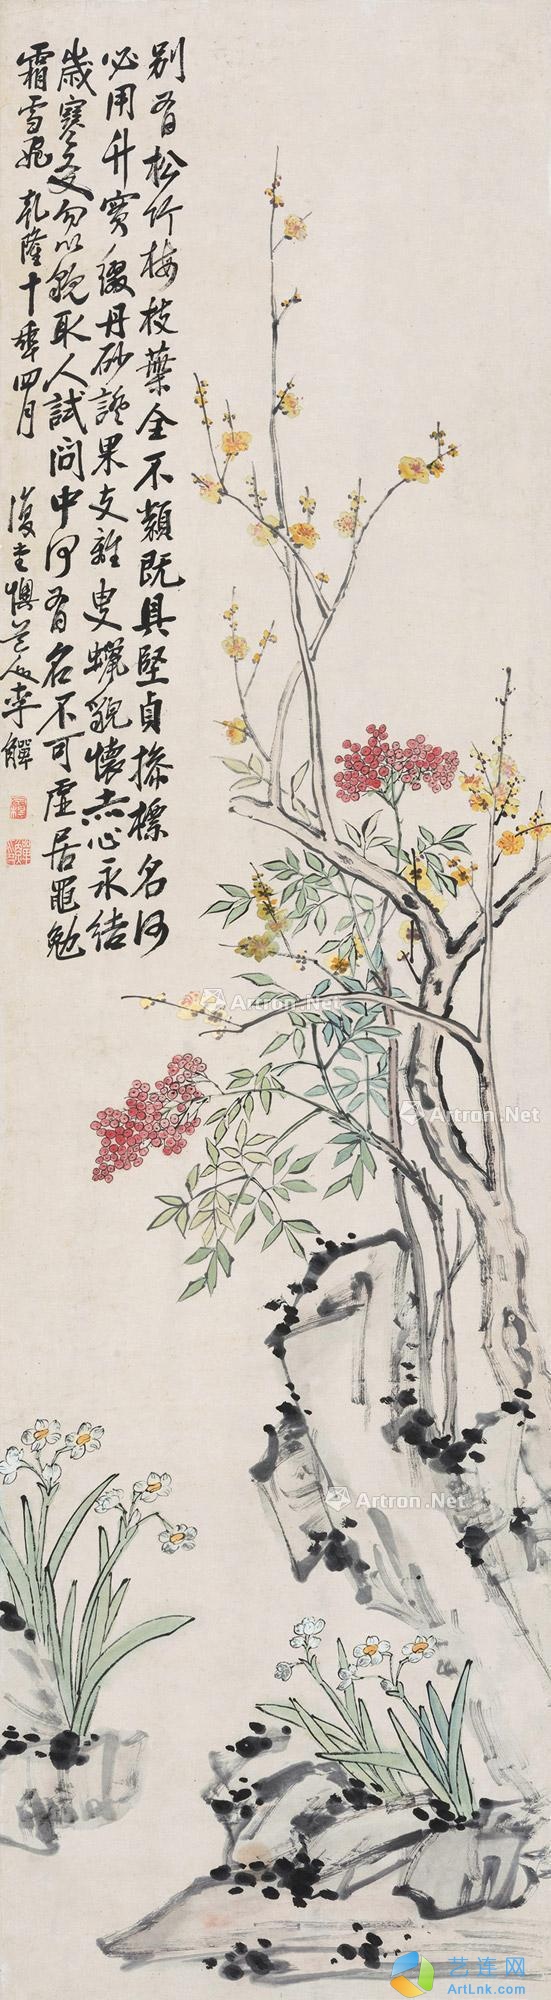 別有松竹梅枝葉全不類既具堅貞操標名何
必用升實綴丹砂讒果支離叟蠟貌懷赤心永結
歲寒交勿以貌取人試問中何有名不可虛居黽勉
霜雪晚 乾隆十年四月
復堂懊道人李鱓
Artron.Net
Artron.Net
Artron.Net
艺连网
ArtLnk.com